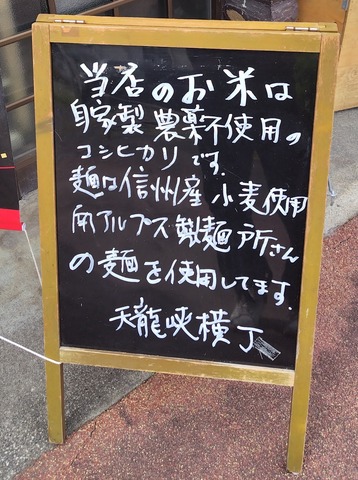 当店のお米は
自家製 農薬不使用の
コシヒカリです。
麺は信州産 小麦使用
南アルプス製麺所さん
の麺を使用してます.
天龍峡横丁